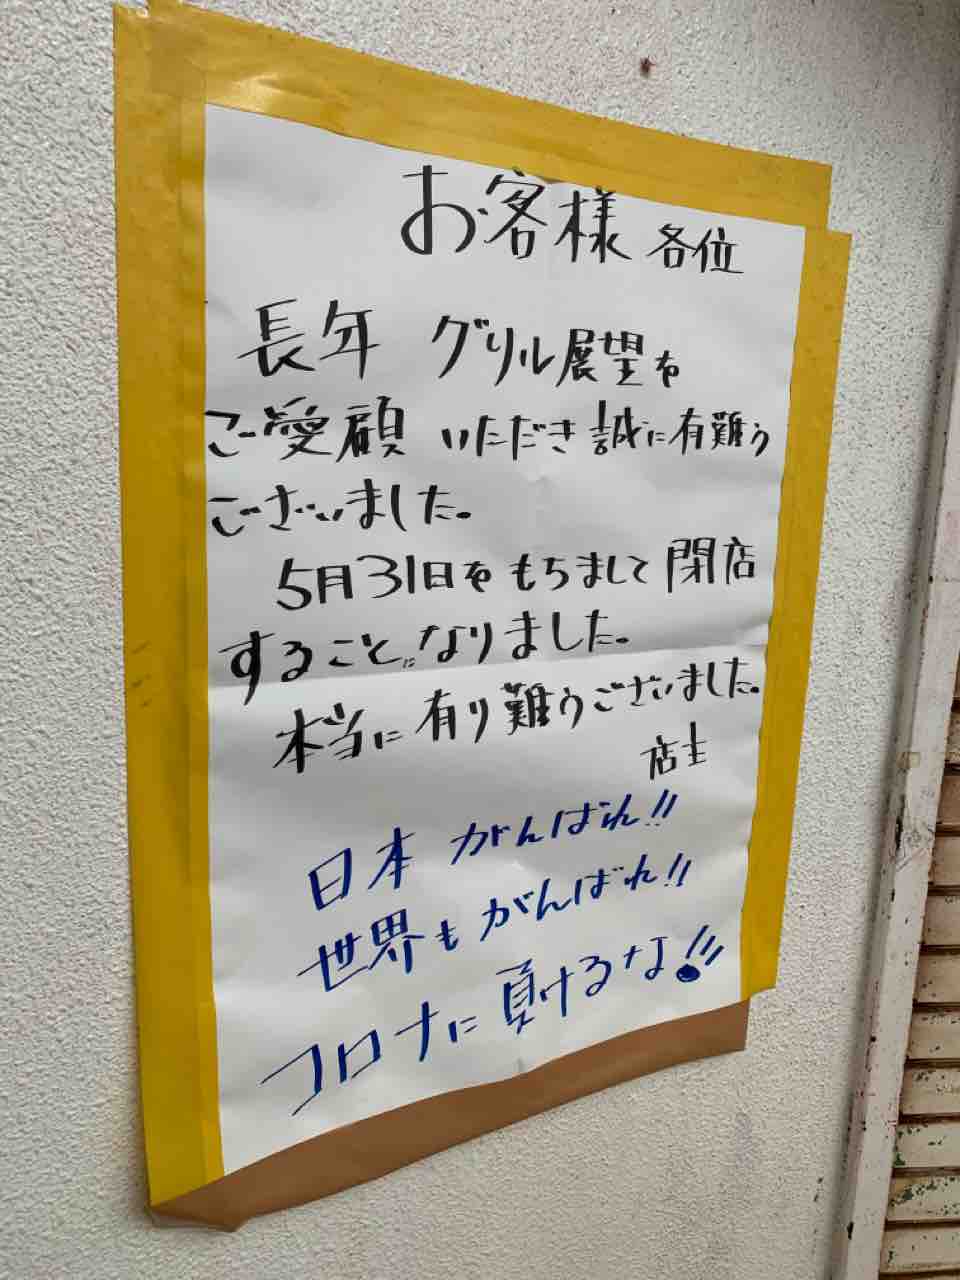 お客様 各位
長年 グリル展望を
ご愛顧 いただき誠に有難う
ございました。
5月31日をもちまして閉店
することになりました。
本当に有り難うございました。
店主
日本 がんばれ!!
世界も がんばれ!!
コロナに負けるな!!!